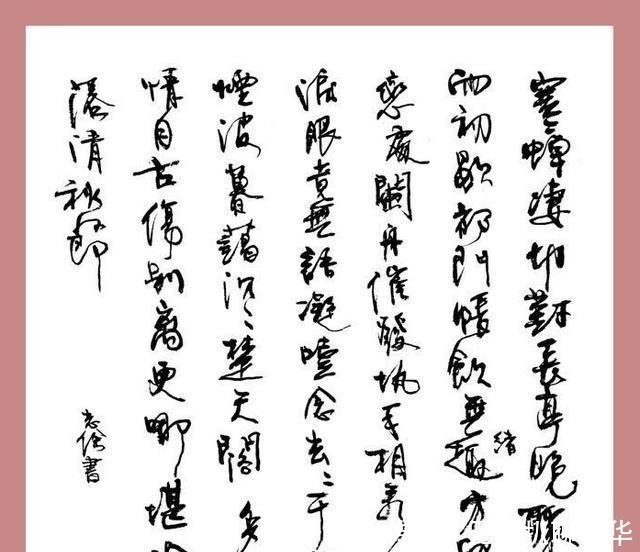 寒蟬淒切對長亭晚
雨初歇都門悵飲無趣方
緒
戀處蘭舟催發執手相看
淚眼竟無語凝噎念去〻千
煙波暮靄沉〻楚天闊多
情自古傷別離更哪堪
落清秋節
書
华